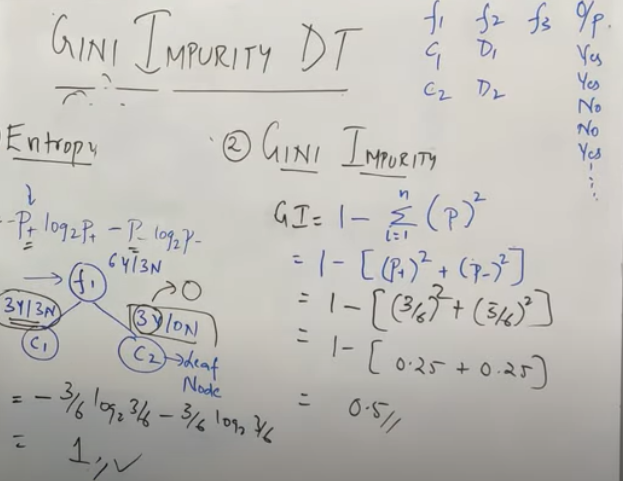 GINI IMPURITY DT
f1 f2 f3 O/p.
C1 D1 Yes
C2 D2 Yes
No
No
Yes
Entropy
- P+ log2P+ - P- log2P-
6Y/3N
f1
3Y/3N
3Y/0N
0
C1
C2 → Leaf
Node
= - 3/6 log2 3/6 - 3/6 log2 3/6
= 1
② GINI IMPURITY
GI = 1 - n∑i=1 (p)²
= 1 - [(P+)² + (P-)²]
= 1 - [(3/6)² + (3/6)²]
= 1 - [0.25 + 0.25]
= 0.5